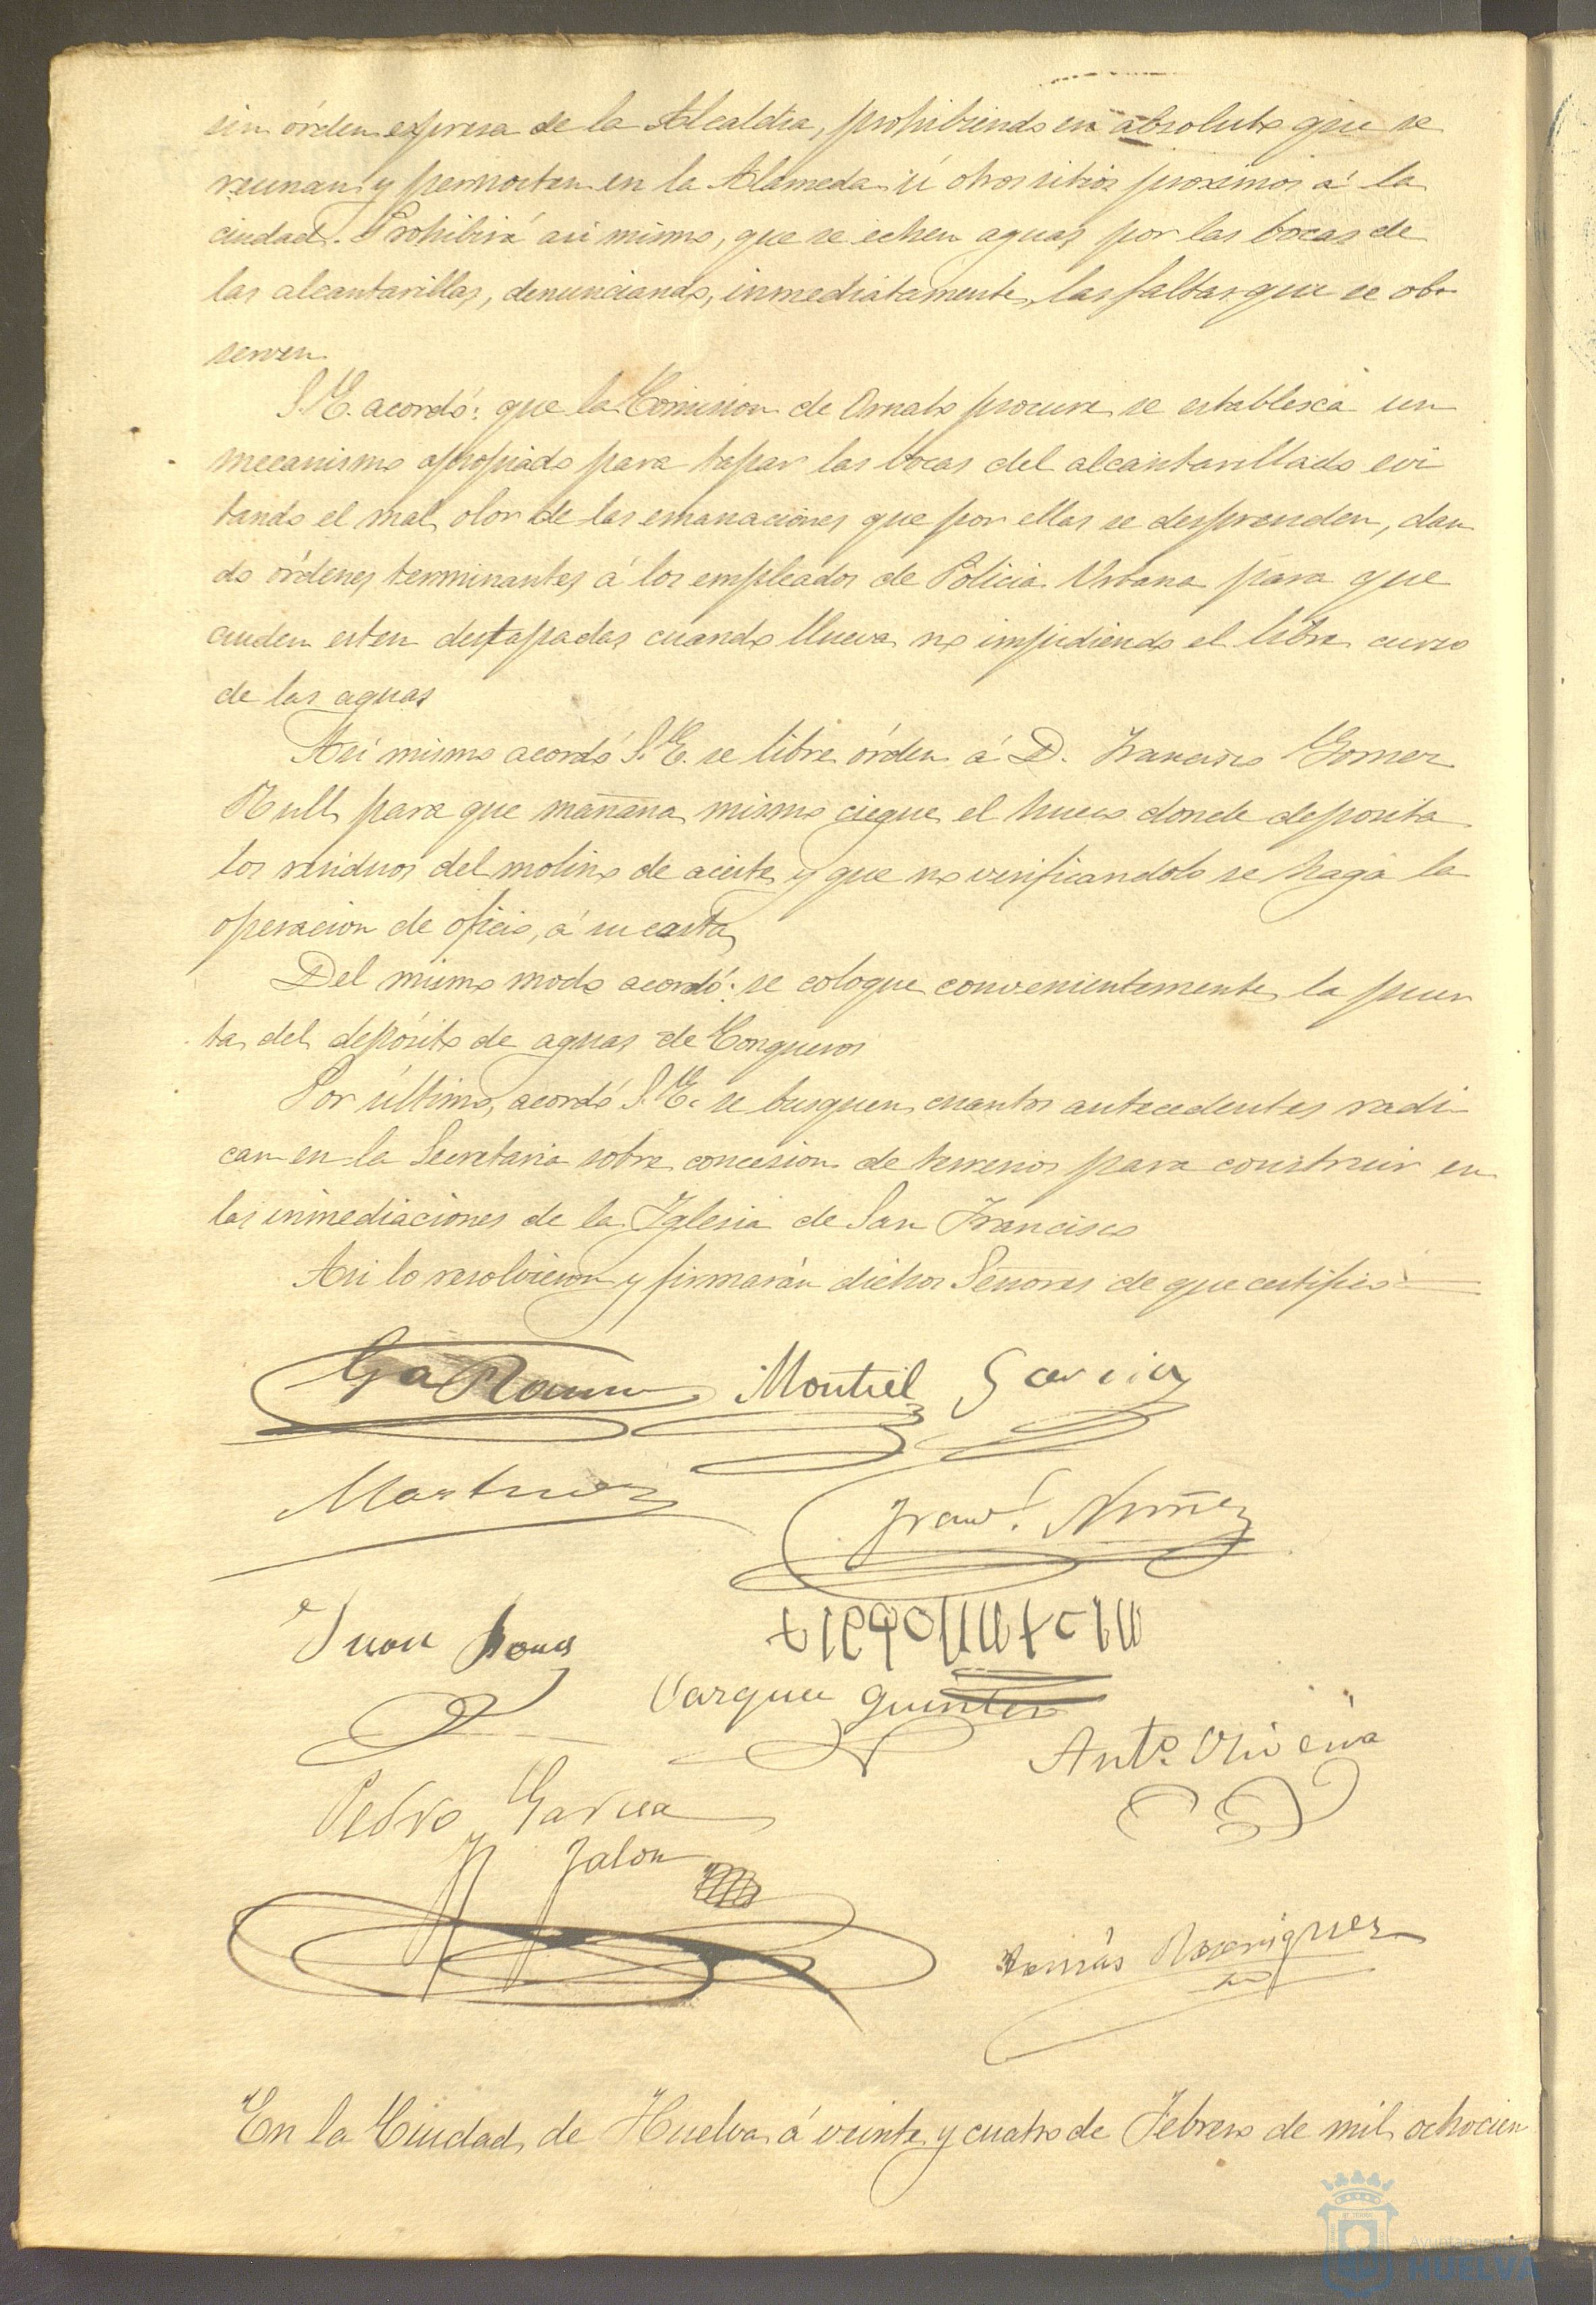 sin órden expresa de la Alcaldia, prohibiendo en absoluto que se
reunan y pernocten en la Alameda ú otros sitios proximos á la
ciudad. Prohibirá asi mismo, que se echen aguas por las bocas de
las alcantarillas, denunciando, inmediatamente, las faltas que se ob-
serven
S.E. acordó: que la Comision de Ornato procure se establesca un
mecanismo apropiado para tapar las bocas del alcantarillado evi
tando el mal olor de las emanaciones que por ellas se desprenden, dan
do órdenes terminantes á los empleados de Policia Urbana para que
cuiden esten destapadas cuando llueva no impidiendo el libre curso
de las aguas
Asi mismo acordó S.E. se libre órden á D. Francisco Gomez
Rull para que mañana mismo ciegue el hueco donde deposita
los residuos del molino de aceite y que no verificandolo se haga la
operacion de oficio, á su costa
Del mismo modo acordó: se coloque convenientemente la puer
ta del depósito de aguas de Conqueros
Por último, acordó S.E. se busquen cuantos antecedentes radi
can en la Secretaria sobre concesion de terrenos para construir en
las inmediaciones de la Iglesia de San Francisco
Asi lo resolvieron y firmarán dichos Señores de que certifico
Montiel Garcia
Martinez
Franco. Nuñez
Juan
Vazquez Quintero
Anto. Oliveira
Pedro Garcia
Jalon
Tomás Rodriguez
En la Ciudad de Huelva á veinte y cuatro de Febrero de mil ochocien
Ayuntamiento de
HUELVA